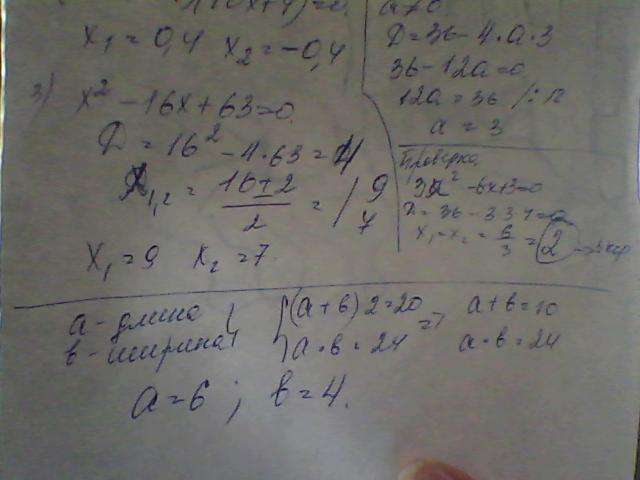 x₁ = 0,4 x₂ = -0,4
3) x² - 16x + 63 = 0
D = 16² - 4·63 = 4
x₁,₂ = (16 ± 2)/2 = / 9 7
x₁ = 9 x₂ = 7
a ≠ 0
D = 36 - 4·a·3
36 - 12a = 0
12a = 36 /:12
a = 3
Проверка
3x² - 6x + 3 = 0
D = 36 - 3·3·4 = 0
x₁ = x₂ = 6/3 = 2
a - длина
в - ширина
{(a + в) 2 = 20 => a + в = 10
a · в = 24 a · в = 24
a = 6 ; в = 4.